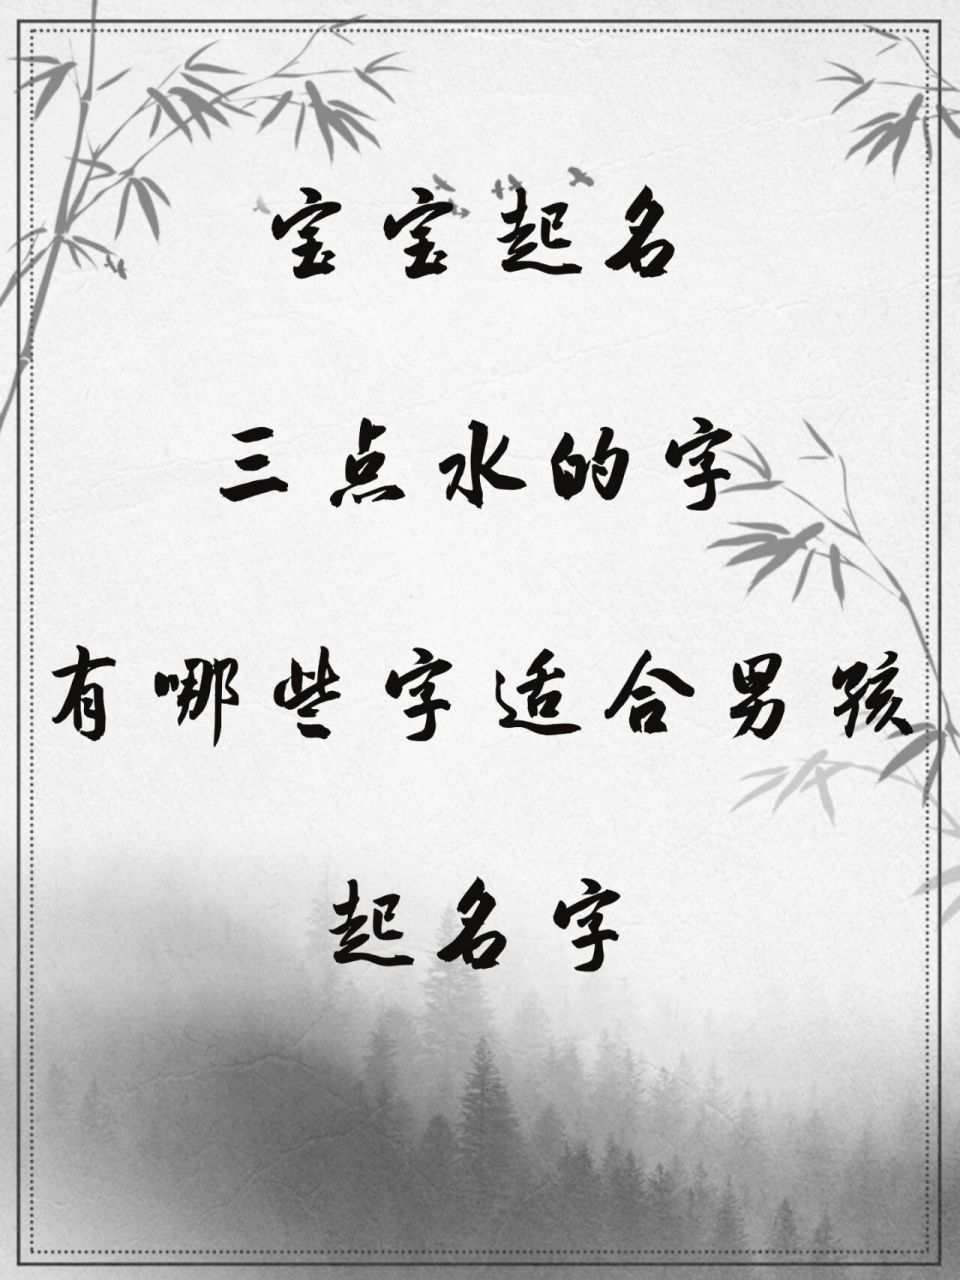 宝宝起名
三点水的字
有哪些字适合男孩
起名字